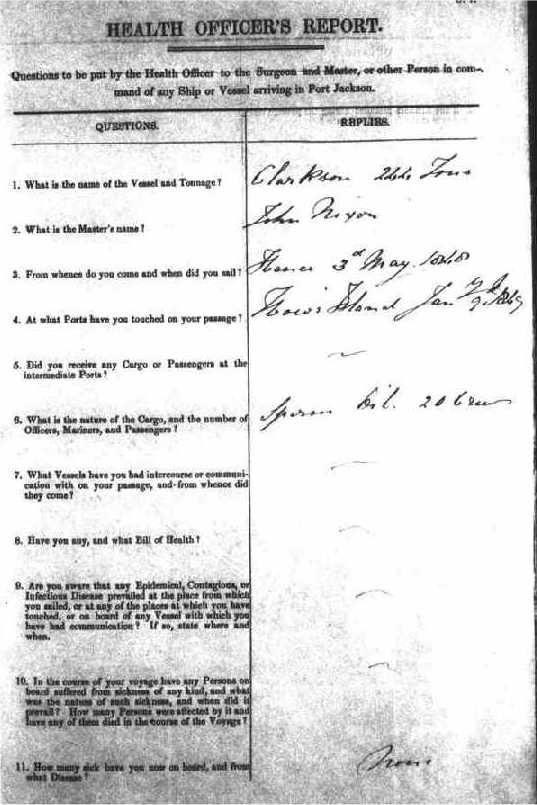 HEALTH OFFICER'S REPORT.
Questions to be put by the Health Officer to the Surgeon and Master, or other Person in com-
mand of any Ship or Vessel arriving in Port Jackson.
QUESTIONS.
REPLIES.
1. What is the name of the Vessel and Tonnage?
Clarkson Tons
2. What is the Master's name?
John Nixon
3. From whence do you come and when did you sail?
3rd May
4. At what Ports have you touched on your passage?
Island Jany
5. Did you receive any Cargo or Passengers at the
intermediate Ports?
6. What is the nature of the Cargo, and the number of
Officers, Mariners, and Passengers?
Sperm Oil. 20 Crew
7. What Vessels have you had intercourse or communi-
cation with on your passage, and from whence did
they come?
8. Have you any, and what Bill of Health?
9. Are you aware that any Epidemical, Contagious, or
Infectious Disease prevailed at the place from which
you sailed, or at any of the places at which you have
touched, or on board of any Vessel with which you
have had communication? If so, state where and
when.
10. In the course of your voyage have any Persons on
board suffered from sickness of any kind, and what
was the nature of such sickness, and when did it
prevail? How many Persons were affected by it and
have any of them died in the course of the Voyage?
11. How many sick have you now on board, and from
what Disease?
None